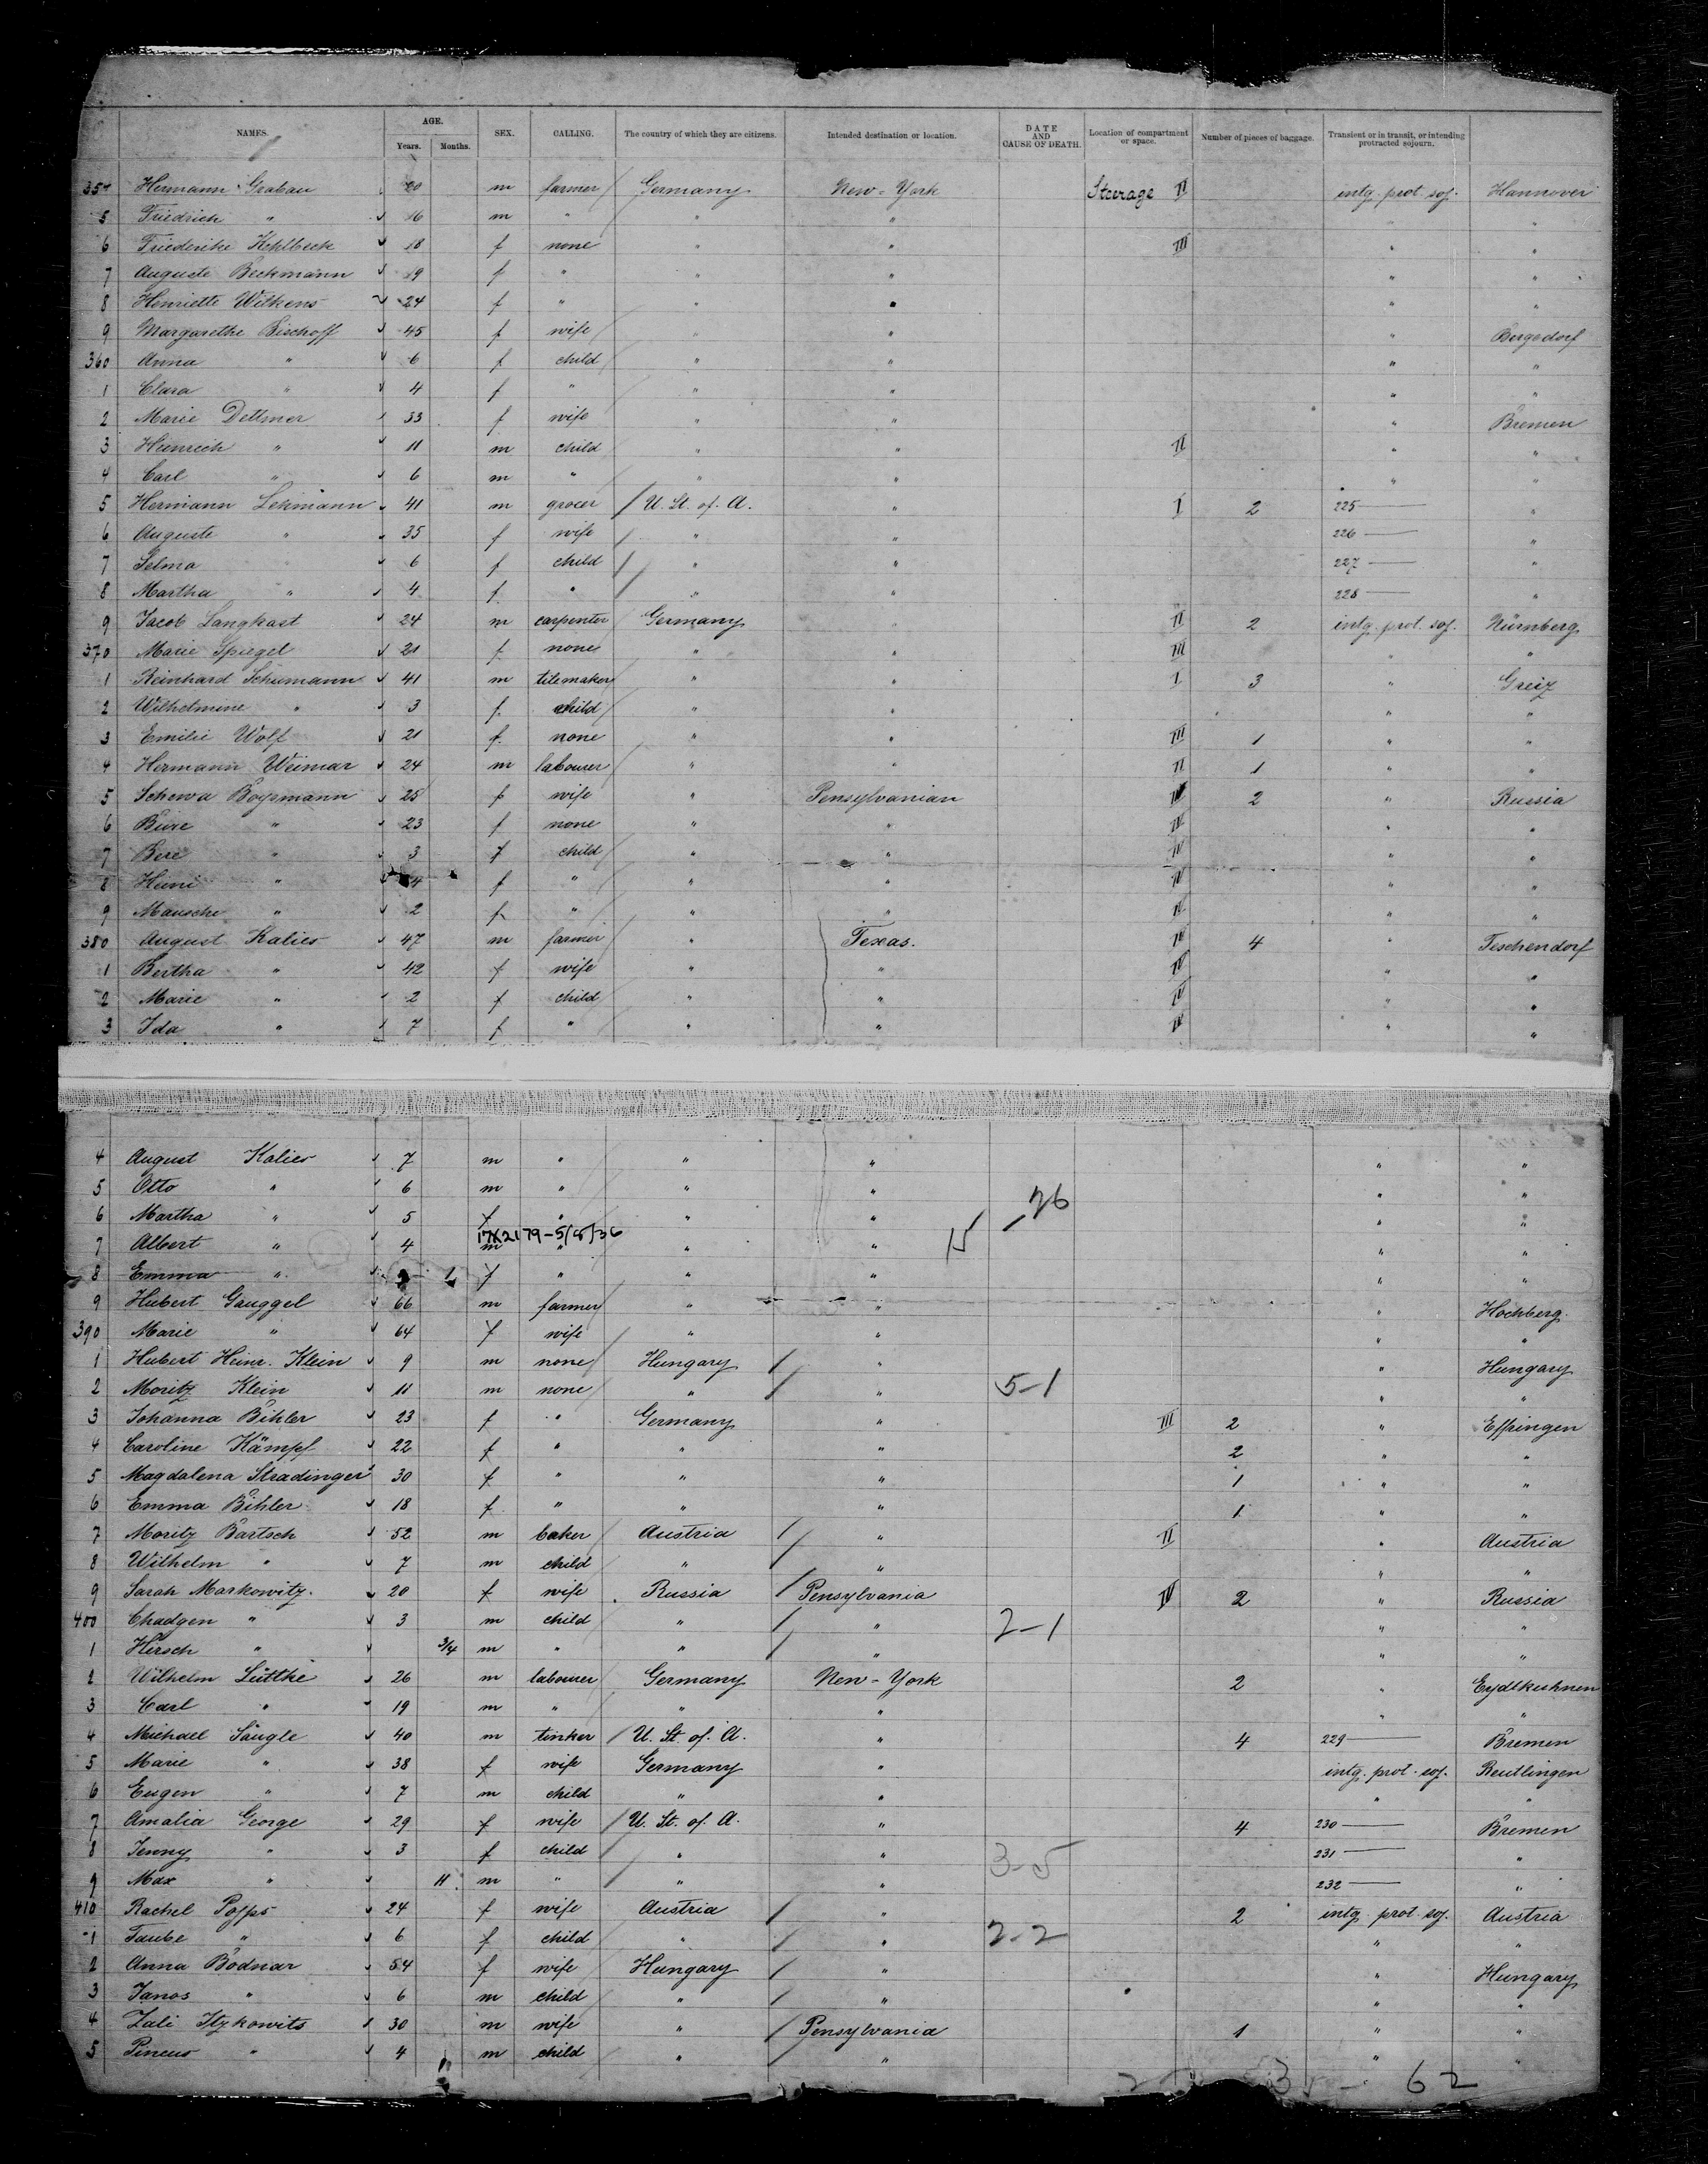 NAMES. AGE. Years. Months. SEX. CALLING. The country of which they are citizens. Intended destination or location. DATE AND CAUSE OF DEATH. Location of compartment or space. Number of pieces of baggage. Transient or in transit, or intending protracted sojourn.
354 Hermann Grabau 20 m farmer Germany New-York Steerage II intg. prot. soj. Hannover
5 Friedrich " 16 m " " " "
6 Friederike Kehlbeck 18 f none " " III " "
7 Auguste Beckmann 19 f " " " " "
8 Henriette Wilkens 24 f " " " " "
9 Margarethe Bischoff 45 f wife " " " Bergedorf
360 Anna " 6 f child " " " "
1 Clara " 4 f " " " " "
2 Marie Dettmer 33 f wife " " " Bremen
3 Heinrich " 11 m child " " II " "
4 Carl " 6 m " " " " "
5 Hermann Lehmann 41 m grocer U. St. of. A. " I 2 225 "
6 Auguste " 35 f wife " " 226 "
7 Selma " 6 f child " " 227 "
8 Martha " 4 f " " " 228 "
9 Jacob Langkast 24 m carpenter Germany " II 2 intg. prot. soj. Nürnberg
370 Marie Spiegel 21 f none " " III " "
1 Reinhard Schumann 41 m tilemaker " " I 3 " Greiz
2 Wilhelmine " 3 f child " " " "
3 Emilie Wolf 21 f none " " III 1 " "
4 Hermann Weimar 24 m labourer " " II 1 " "
5 Schewa Boysmann 25 f wife " Pensylvanian IV 2 " Russia
6 Bure " 23 f none " " IV " "
7 Bere " 3 f child " " IV " "
8 Heini " 4 f " " " IV " "
9 Mausche " 2 f " " " IV " "
380 August Kalies 47 m farmer " Texas. IV 4 " Teschendorf
1 Bertha " 42 f wife " " IV " "
2 Marie " 2 f child " " IV " "
3 Ida " 7 f " " " IV " "
4 August Kalies 7 m " " " " "
5 Otto " 6 m " " " 26 " "
6 Martha " 5 f " " " " "
17X2179-5/5/36
7 Albert " 4 m " " " 15 " "
8 Emma " 1 f " " " " "
9 Hubert Gauggel 66 m farmer " " " Hochberg.
390 Marie " 64 f wife " " " "
1 Hubert Heinr. Klein 9 m none Hungary " " Hungary
2 Moritz Klein 11 m none " " 5-1 " "
3 Johanna Bihler 23 f " Germany " III 2 " Effringen
4 Caroline Kämpf 22 f " " " 2 " "
5 Magdalena Stradinger 30 f " " " 1 " "
6 Emma Bihler 18 f " " " 1 " "
7 Moritz Bartsch 52 m baker Austria " II " Austria
8 Wilhelm " 7 m child " " " "
9 Sarah Markowitz. 20 f wife Russia Pensylvania IV 2 " Russia
400 Chadgen " 3 m child " " 2-1 " "
1 Hirsch " 3/4 m " " " " "
2 Wilhelm Lüttke 26 m labourer Germany New-York 2 " Eydtkuhnen
3 Carl " 19 m " " " " "
4 Michael Säugle 40 m tinker U. St. of. A. " 4 229 Bremen
5 Marie " 38 f wife Germany " intg. prot. soj. Reutlingen
6 Eugen " 7 m child " " " "
7 Amalia George 29 f wife U. St. of. A. " 4 230 Bremen
8 Jenny " 3 f child " " 3-5 231 "
9 Max " 11. m " " " 232 "
410 Rachel Popps 24 f wife Austria " 2 intg. prot. soj. Austria
1 Taube " 6 f child " " 2-2 " "
2 Anna Bodnar 54 f wife Hungary " " Hungary
3 Janos " 6 m child " " " "
4 Zali Itzkowits 30 m wife " Pensylvania 1 " "
5 Pincus " 4 m child " " " "
62